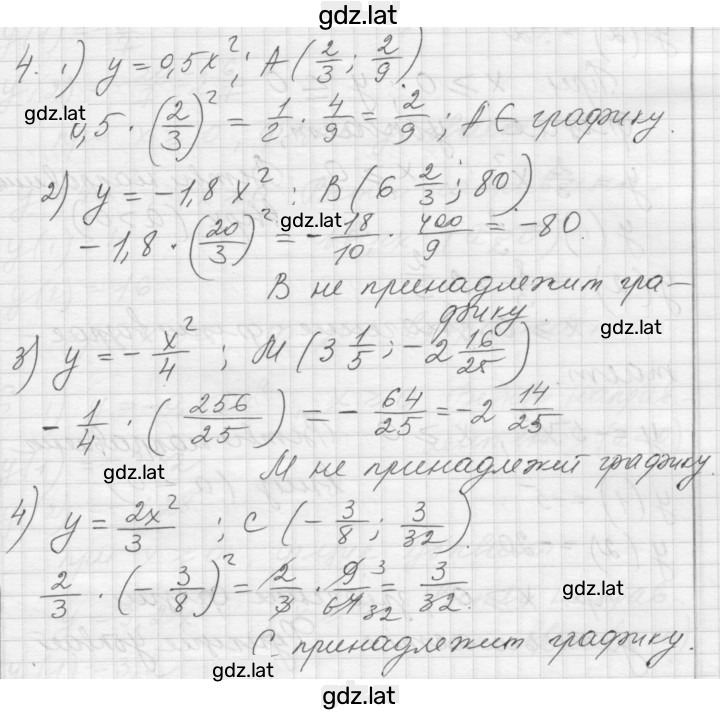 gdz.lat
4. 1) y = 0,5x²; A(2/3; 2/9)
gdz.lat
0,5 · (2/3)² = 1/2 · 4/9 = 2/9; A ∈ графику.
2) y = -1,8x²; B(6 2/3; 80)
gdz.lat
-1,8 · (20/3)² = -18/10 · 400/9 = -80.
B не принадлежит гра-
фику.
gdz.lat
3) y = -x²/4; M(3 1/5; -2 16/25)
-1/4 · (256/25) = -64/25 = -2 14/25
gdz.lat
M не принадлежит графику.
4) y = 2x²/3; C(-3/8; 3/32).
2/3 · (-3/8)² = 2/3 · 9/64 3 32 = 3/32.
gdz.lat
C принадлежит графику.
gdz.lat
gdz.lat